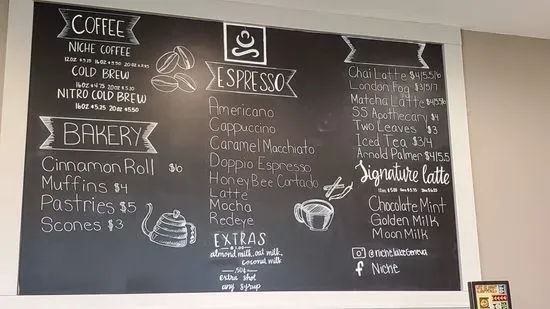 COFFEE
NICHE COFFEE
COLD BREW
NITRO COLD BREW
BAKERY
Cinnamon Roll $6
Muffins $4
Pastries $5
Scones $3
ESPRESSO
Americano
Cappuccino
Caramel Macchiato
Doppio Espresso
Honey Bee Cortado
Latte
Mocha
Redeye
EXTRAS
almond milk, oat milk,
coconut milk
.50¢
extra shot
any syrup
Chai Latte
London Fog $3/5/7
Matcha Latte
SS Apothecary $4
Two Leaves $3
Iced Tea $3/4
Arnold Palmer
Signature latte
Chocolate Mint
Golden Milk
Moon Milk
@nichelakegeneva
Niche